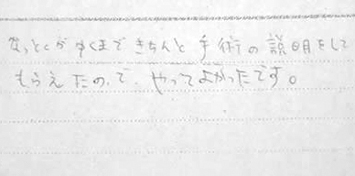 なっとくがゆくまできちんと手術の説明をして
もらえたので、やってよかったです。